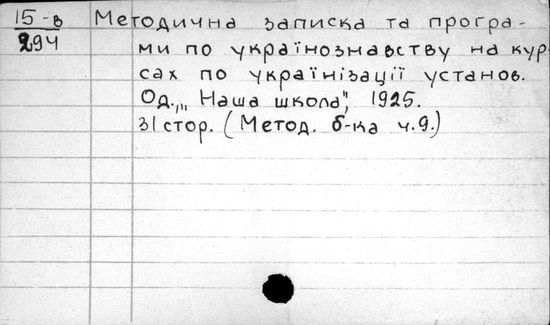 15-в
294
Методична записка та програ-
ми по українознавству на кур
сах по українізації установ.
Од., "Наша школа", 1925.
31 стор. (Метод. б-ка ч.9.)